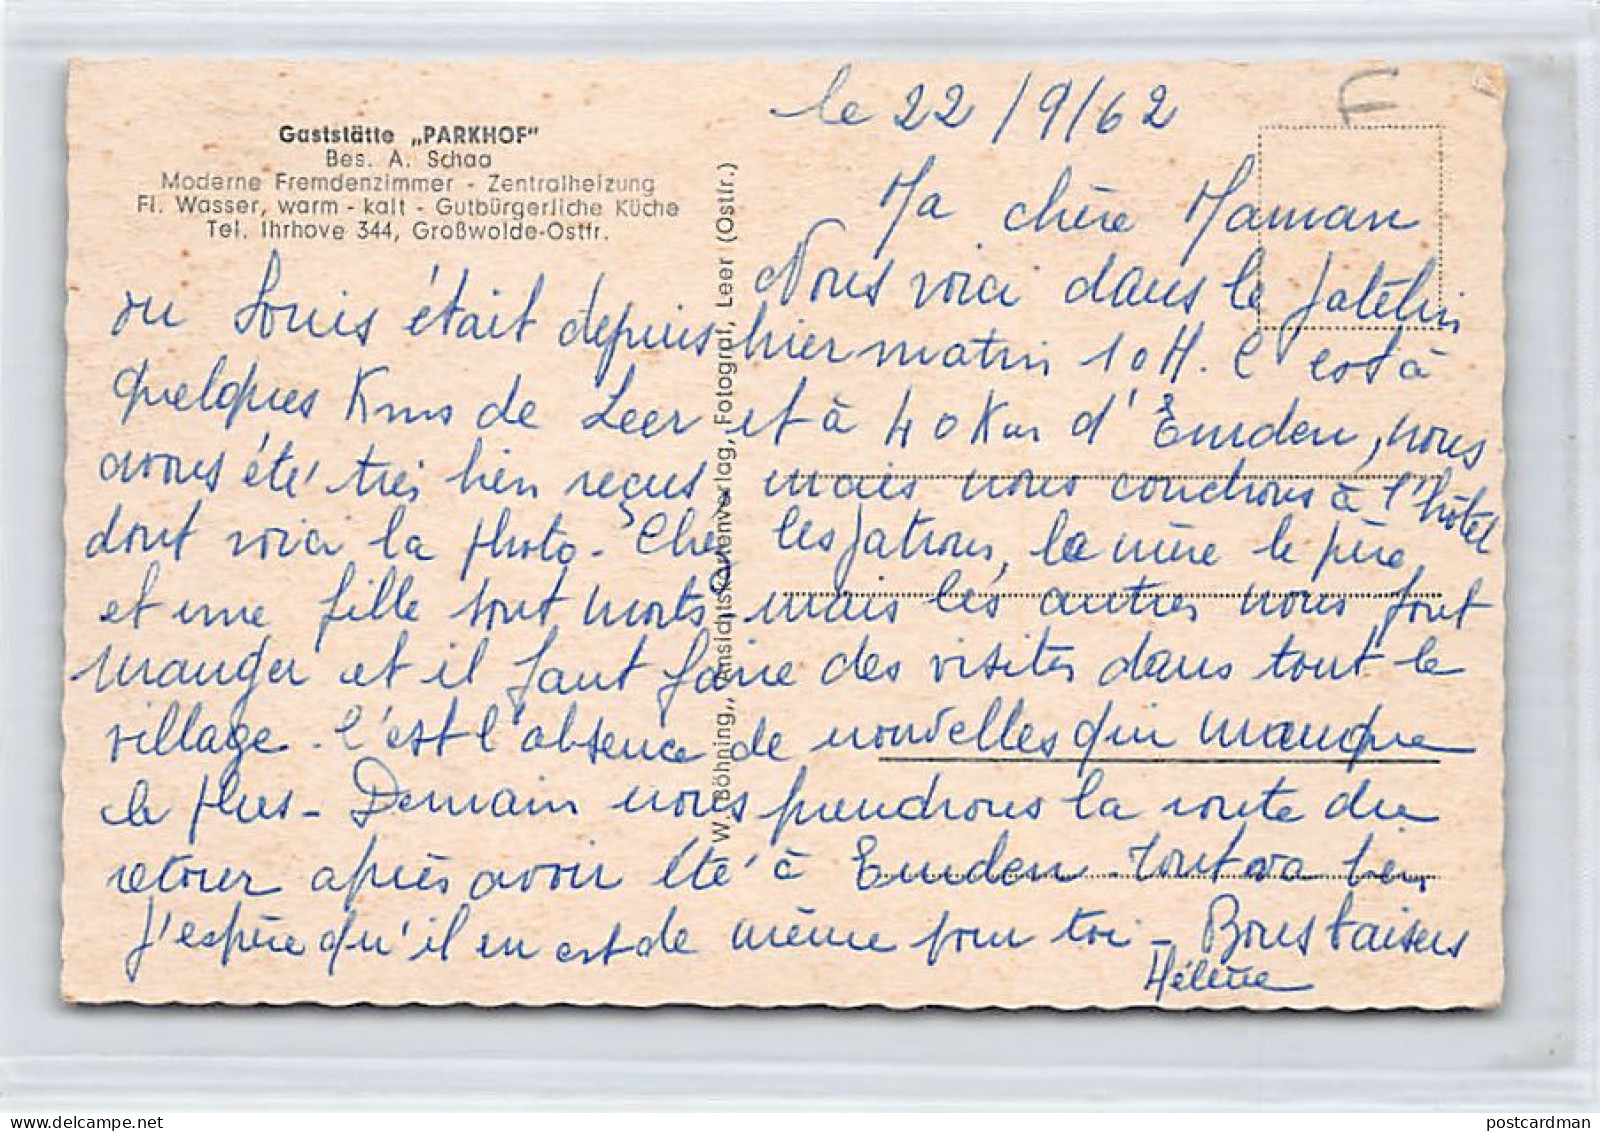 le 22/9/62
F
Gaststätte „PARKHOF"
Bes. A. Schaa
Moderne Fremdenzimmer - Zentralheizung
Fl. Wasser, warm - kalt - Gutbürgerliche Küche
Tel. Ihrhove 344, Großwolde-Ostfr.
W. Böhning, Ansichtskartenverlag, Fotograf, Leer (Ostfr.)
Ma chère Maman
Nous voici dans le patelin
où Louis était depuis hier matin 10H. C'est à
quelques Kms de Leer et à 40 Km d'Emden, nous
avons été très bien reçus, mais nous couchons à l'hôtel
dont voici la photo - Chez les patrons, la mère le père
et une fille sont morts mais les autres nous font
manger et il faut faire des visites dans tout le
village. C'est l'absence de nouvelles qui manque
le plus - Demain nous prendrons la route du
retour après avoir été à Emden. Tout va bien
J'espère qu'il en est de même pour toi - Bons baisers
Hélène
postcardman